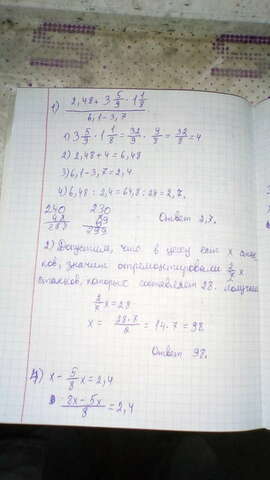 1) (2,48 + 3 5/9 · 1 1/8) / (6,1 - 3,7)
1) 3 5/9 · 1 1/8 = 32/9 · 9/8 = 32/8 = 4
2) 2,48 + 4 = 6,48
3) 6,1 - 3,7 = 2,4
4) 6,48 : 2,4 = 64,8 : 24 = 2,7.
240 230
Ответ 2,7.
2) Допустим, что в цеху было x станков,
значит отремонтировали 2/7 x
станков, которые составляет 28. Получаем
2/7 x = 28
x = 28·7/2 = 14·7 = 98
Ответ 98.
4) x - 5/8 x = 2,4
(8x - 5x)/8 = 2,4